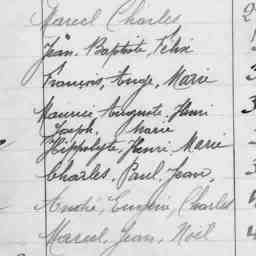 Marcel Charles 2
Jean, Baptiste, Félix
François, Ange, Marie 3
Maurice, Auguste, Henri
Joseph, Marie
Hippolyte, Henri, Marie
Charles, Paul, Jean,
André, Eugène, Charles
Marcel, Jean, Noël